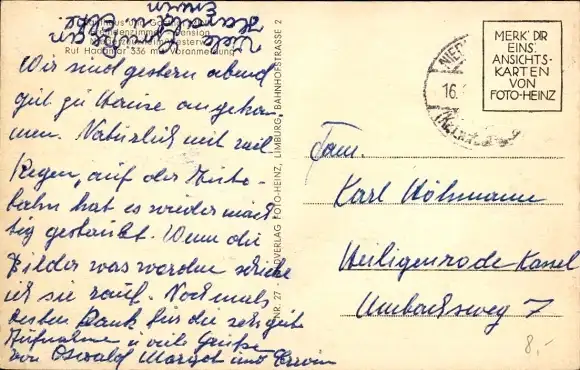 Gasthaus und
Fremdenzimmer Pension
Ruf Hadamar 336 mit Voranmeldung
Viele Grüße an
Wir sind gestern abend
gut zu Hause angekom
men. Natürlich mit viel
Regen, auf der Auto-
bahn hat es wieder mäch
tig gestaubt. Wenn die
Bilder was werden schicke
ich sie rauf. Nochmals
besten Dank für die sehr gute
Aufnahme u viele Grüße
von Oswald Margot und Erwin
NR. 27 - FOTO-HEINZ, LIMBURG, BAHNHOFSTRASSE 2
16.
MERK' DIR
EINS:
ANSICHTS-
KARTEN
VON
FOTO-HEINZ
Fam.
Karl Höhmann
Heiligenrode Kassel
Umbachsweg 7
8,-